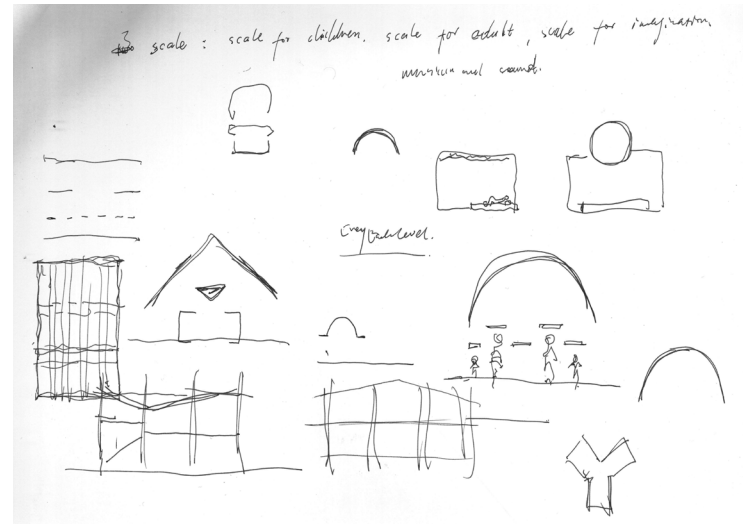 3 scale : scale for children. scale for adult, scale for imagination.
and sound.
level.